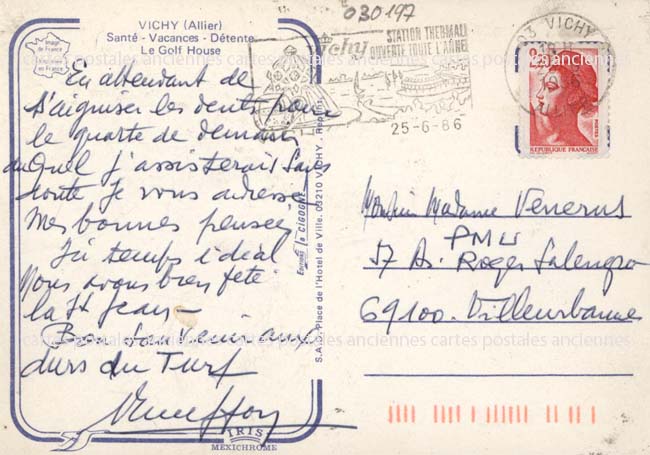 030197
VICHY (Allier)
Santé - Vacances - Détente
Le Golf House
Image de France
En attendant de
s'aiguiser les dents pour
le quarté de demain
duquel j'assisterai sans
doute je vous adresse
mes bonnes pensées
Ici temps idéal
Nous avons bien fêté
la St Jean -
Bon souvenir aux
durs du Turf
IRIS
MEXICHROME
Editions la CIGOGNE
S.A.R. Place de l'Hôtel de Ville. 03210 VICHY.
Vichy
STATION THERMALE
OUVERTE TOUTE L'ANNEE
25-6-86
03 VICHY
2,20
POSTES
REPUBLIQUE FRANÇAISE
Monsieur Madame Venerus
PMU
57 Av. Roger Salengro
69100 - Villeurbanne
cartes postales anciennes cartes postales anciennes